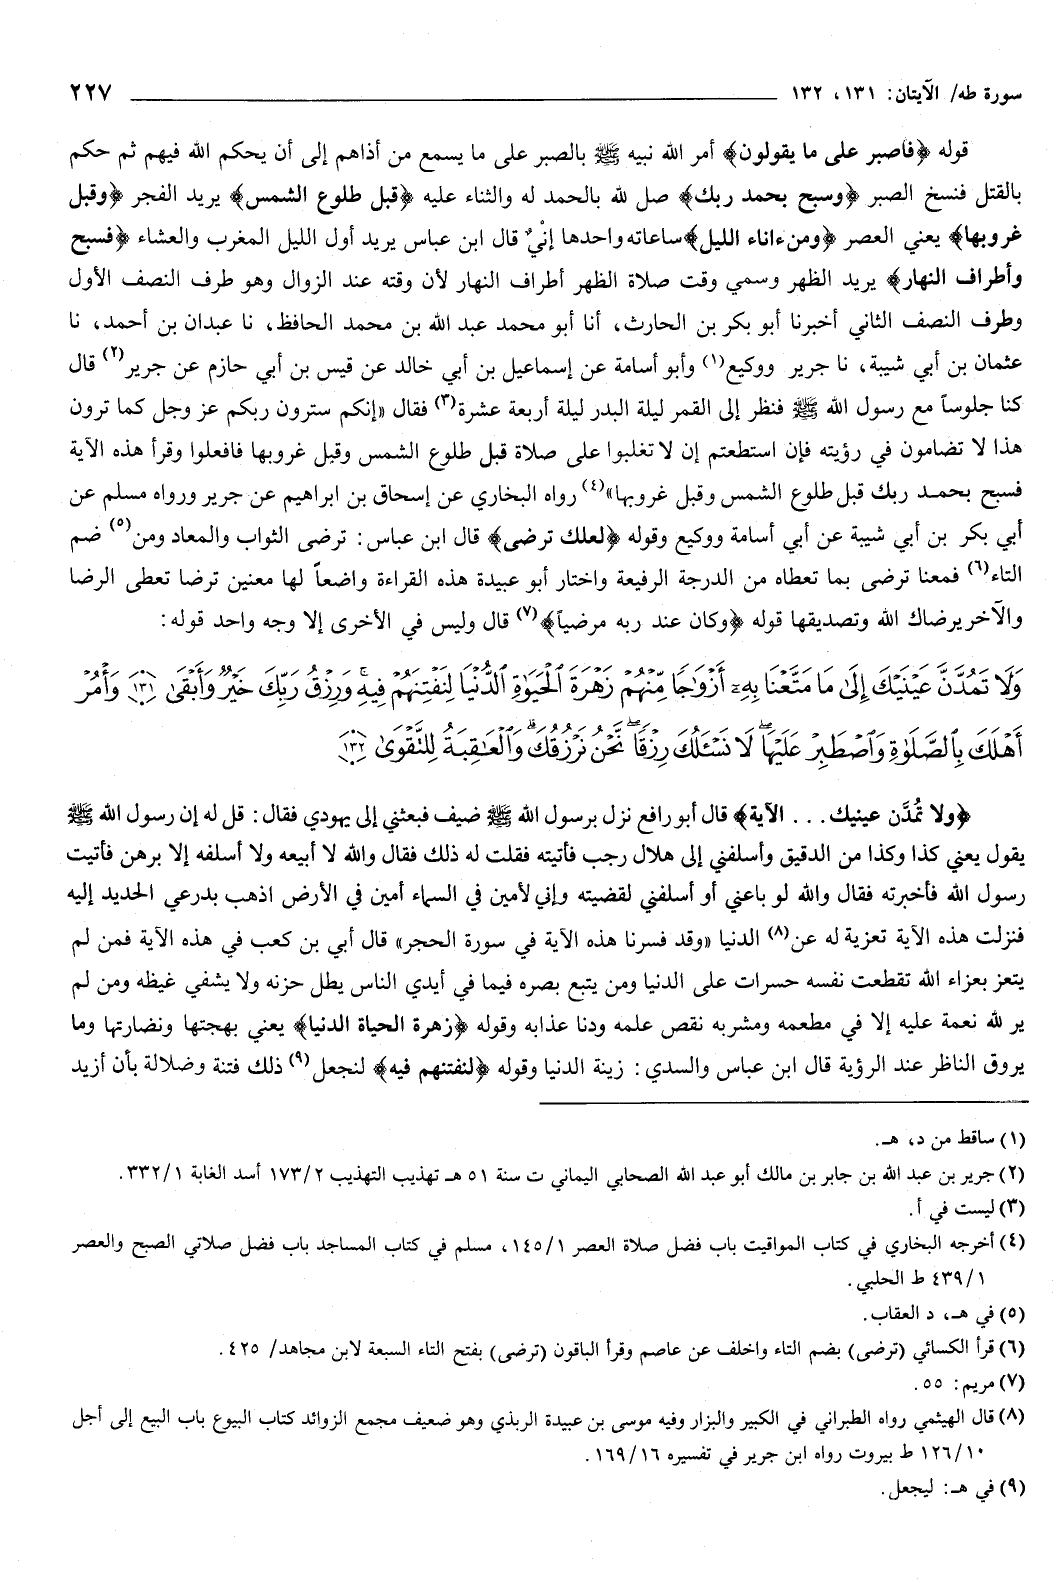 سورة طه/ الآيتان: ١٣١، ١٣٢ ٢٢٧
قوله ﴿فاصبر على ما يقولون﴾ أمر الله نبيه ﷺ بالصبر على ما يسمع من أذاهم إلى أن يحكم الله فيهم ثم حكم
بالقتل فنسخ الصبر ﴿وسبح بحمد ربك﴾ صل لله بالحمد له والثناء عليه ﴿قبل طلوع الشمس﴾ يريد الفجر ﴿وقبل
غروبها﴾ يعني العصر ﴿ومن ءاناء الليل﴾ ساعاته واحدها إنْيٌ قال ابن عباس يريد أول الليل المغرب والعشاء ﴿فسبح
وأطراف النهار﴾ يريد الظهر وسمي وقت صلاة الظهر أطراف النهار لأن وقته عند الزوال وهو طرف النصف الأول
وطرف النصف الثاني أخبرنا أبو بكر بن الحارث، أنا أبو محمد عبد الله بن محمد الحافظ، نا عبدان بن أحمد، نا
عثمان بن أبي شيبة، نا جرير ووكيع(١) وأبو أسامة عن إسماعيل بن أبي خالد عن قيس بن أبي حازم عن جرير(٢) قال
كنا جلوساً مع رسول الله ﷺ فنظر إلى القمر ليلة البدر ليلة أربعة عشرة(٣) فقال «إنكم سترون ربكم عز وجل كما ترون
هذا لا تضامون في رؤيته فإن استطعتم إن لا تغلبوا على صلاة قبل طلوع الشمس وقبل غروبها فافعلوا وقرأ هذه الآية
فسبح بحمد ربك قبل طلوع الشمس وقبل غروبها»(٤) رواه البخاري عن إسحاق بن ابراهيم عن جرير ورواه مسلم عن
أبي بكر بن أبي شيبة عن أبي أسامة ووكيع وقوله ﴿لعلك ترضى﴾ قال ابن عباس: ترضى الثواب والمعاد ومن(٥) ضم
التاء(٦) فمعنا ترضى بما تعطاه من الدرجة الرفيعة واختار أبو عبيدة هذه القراءة واضعاً لها معنين ترضا تعطى الرضا
والآخر يرضاك الله وتصديقها قوله ﴿وكان عند ربه مرضياً﴾(٧) قال وليس في الأخرى إلا وجه واحد قوله:
وَلَا تَمُدَّنَّ عَيْنَيْكَ إِلَىٰ مَا مَتَّعْنَا بِهِۦٓ أَزْوَٰجًا مِّنْهُمْ زَهْرَةَ ٱلْحَيَوٰةِ ٱلدُّنْيَا لِنَفْتِنَهُمْ فِيهِ ۚ وَرِزْقُ رَبِّكَ خَيْرٌ وَأَبْقَىٰ ﴿١٣١﴾ وَأْمُرْ
أَهْلَكَ بِٱلصَّلَوٰةِ وَٱصْطَبِرْ عَلَيْهَا ۖ لَا نَسْـَٔلُكَ رِزْقًا ۖ نَّحْنُ نَرْزُقُكَ ۗ وَٱلْعَـٰقِبَةُ لِلتَّقْوَىٰ ﴿١٣٢﴾
﴿ولا تمُدَّن عينيك... الآية﴾ قال أبو رافع نزل برسول الله ﷺ ضيف فبعثني إلى يهودي فقال: قل له إن رسول الله ﷺ
يقول يعني كذا وكذا من الدقيق وأسلفني إلى هلال رجب فأتيته فقلت له ذلك فقال والله لا أبيعه ولا أسلفه إلا برهن فأتيت
رسول الله فأخبرته فقال والله لو باعني أو أسلفني لقضيته وإني لأمين في السماء أمين في الأرض اذهب بدرعي الحديد إليه
فنزلت هذه الآية تعزية له عن(٨) الدنيا «وقد فسرنا هذه الآية في سورة الحجر» قال أبي بن كعب في هذه الآية فمن لم
يتعز بعزاء الله تقطعت نفسه حسرات على الدنيا ومن يتبع بصره فيما في أيدي الناس يطل حزنه ولا يشفي غيظه ومن لم
ير لله نعمة عليه إلا في مطعمه ومشربه نقص علمه ودنا عذابه وقوله ﴿زهرة الحياة الدنيا﴾ يعني بهجتها ونضارتها وما
يروق الناظر عند الرؤية قال ابن عباس والسدي: زينة الدنيا وقوله ﴿لنفتنهم فيه﴾ لنجعل(٩) ذلك فتنة وضلالة بأن أزيد
(١) ساقط من د، هـ.
(٢) جرير بن عبد الله بن جابر بن مالك أبو عبد الله الصحابي اليماني ت سنة ٥١ هـ تهذيب التهذيب ١٧٣/٢ أسد الغابة ٣٣٢/١.
(٣) ليست في أ.
(٤) أخرجه البخاري في كتاب المواقيت باب فضل صلاة العصر ١٤٥/١، مسلم في كتاب المساجد باب فضل صلاتي الصبح والعصر
٤٣٩/١ ط الحلبي.
(٥) في هـ، د العقاب.
(٦) قرأ الكسائي (ترضى) بضم التاء واخلف عن عاصم وقرأ الباقون (ترضى) بفتح التاء السبعة لابن مجاهد/ ٤٢٥.
(٧) مريم: ٥٥.
(٨) قال الهيثمي رواه الطبراني في الكبير والبزار وفيه موسى بن عبيدة الربذي وهو ضعيف مجمع الزوائد كتاب البيوع باب البيع إلى أجل
١٢٦/١٠ ط بيروت رواه ابن جرير في تفسيره ١٦٩/١٦.
(٩) في هـ: ليجعل.